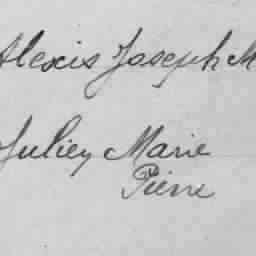 Alexis Joseph M
Julien Marie
Pierre